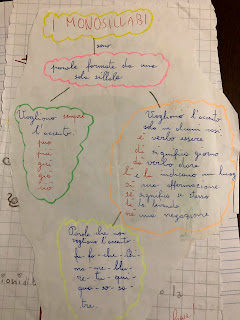 I MONOSILLABI
sono
parole formate da una
sola sillaba
Vogliono sempre
l'accento:
può
più
giù
già
ciò
Vogliono l'accento
solo in alcuni casi:
è verbo essere
dì significa giorno
dà verbo dare
lì e là indicano un luogo
sì una affermazione
sé significa a stesso
tè la bevanda
né una negazione
Parole che non
vogliono l'accento:
fu - fa - che - chi
ma - me - blu -
re - tu - qui -
qua - so - sa -
tre.